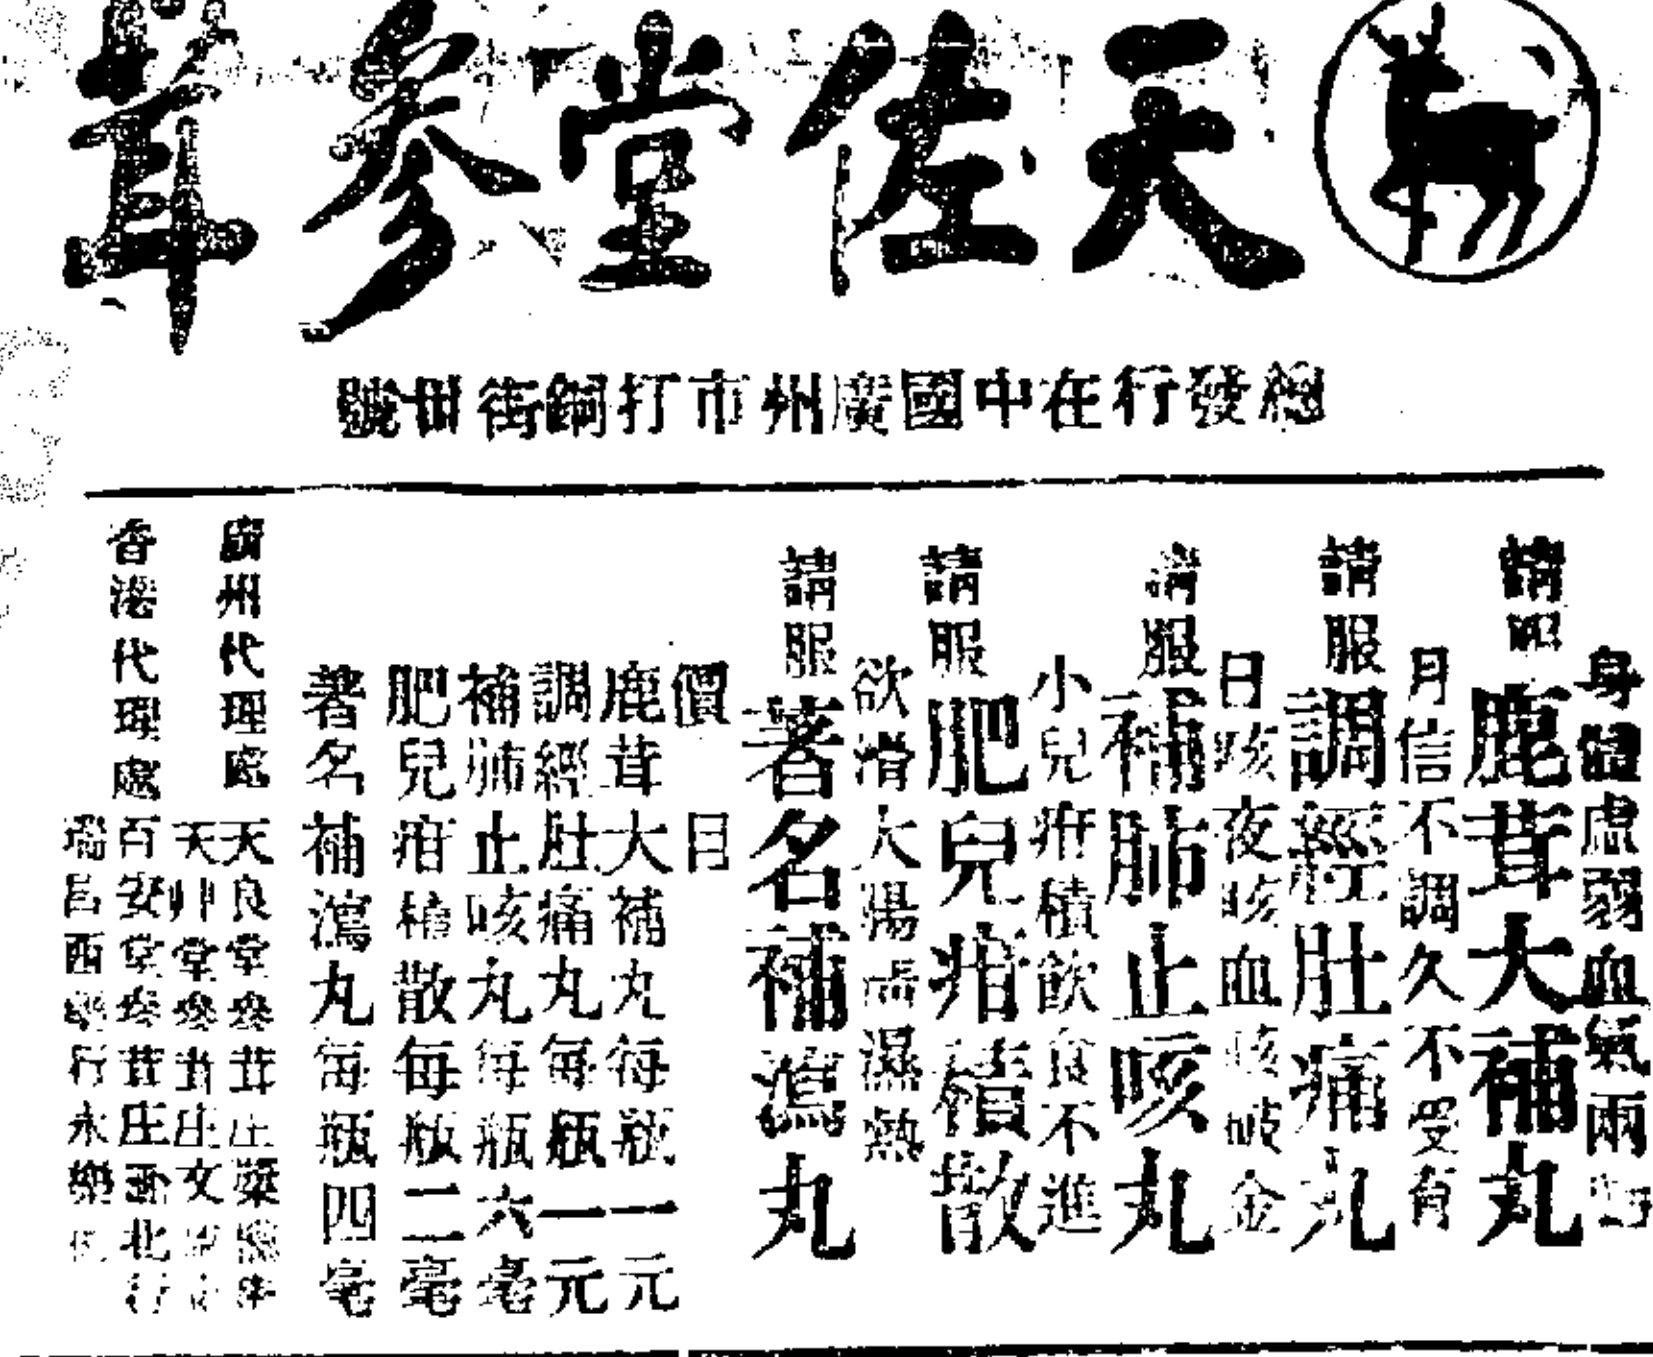 天佐堂參茸
總發行在中國廣州市打銅街卅號
身體虛弱血氣兩
請服鹿茸大補丸
月信不調久不受育
請服調經肚痛丸
日咳夜咳血咳破金
請服補肺止咳丸
小兒疳積飲食不進
請服肥兒疳積散
欲清大腸濕熱
請服著名補瀉丸
價目
鹿茸大補丸每瓶一元
調經肚痛丸每瓶一元
補肺止咳丸每瓶六毫
肥兒疳積散每瓶二毫
著名補瀉丸每瓶四毫
廣州代理處
天良堂參茸庄槳欄
天卅堂參茸庄文
香港代理處
百安堂參茸庄西北行
瑞昌西藥行永樂